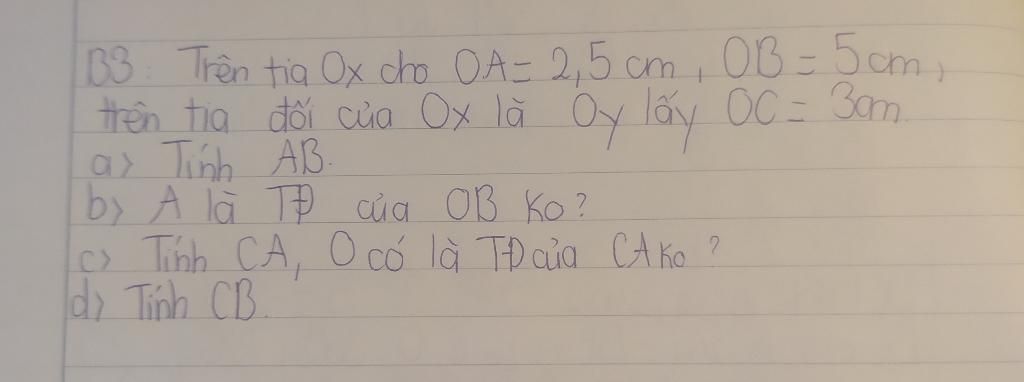 B3: Trên tia Ox cho OA = 2,5 cm, OB = 5 cm,
trên tia đối của Ox là Oy lấy OC = 3cm.
a) Tính AB.
b) A là TĐ của OB ko?
c) Tính CA, O có là TĐ của CA ko?
d) Tính CB.